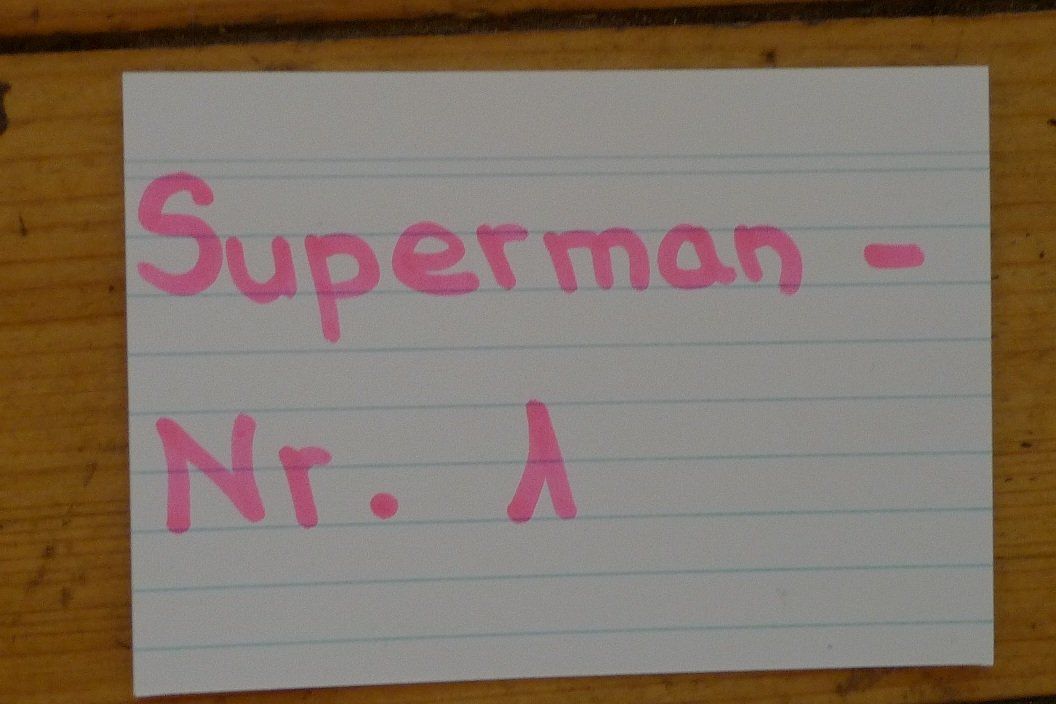 Superman -
Nr. λ